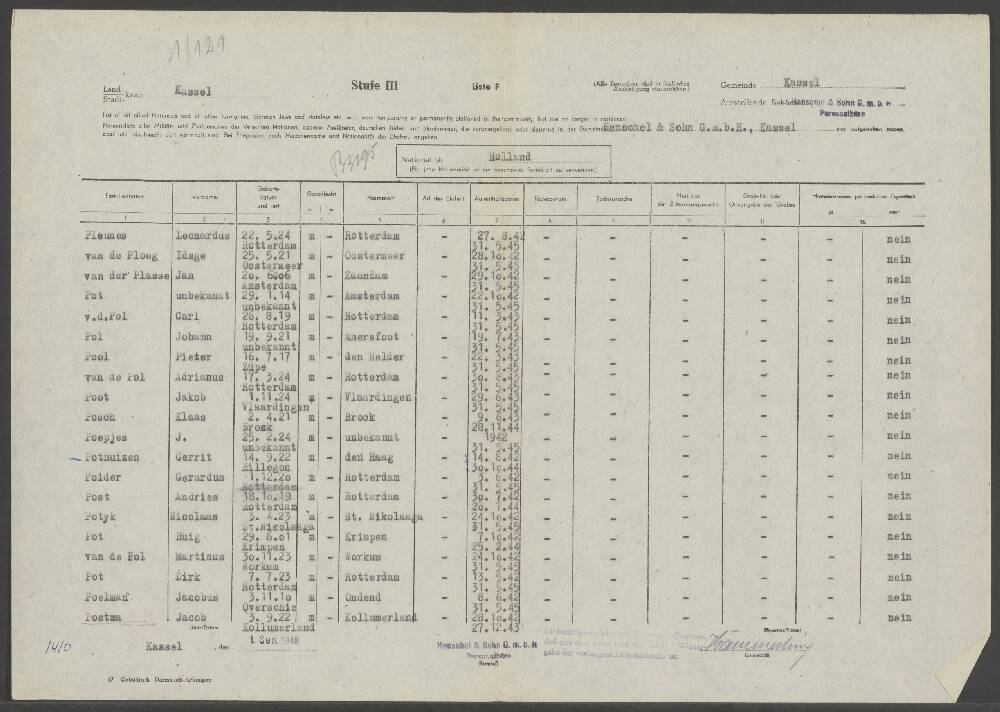 1/121
Land
Stadt- kreis Kassel
Stufe III
Liste F
(Alle Personen sind in
Gemeinde Kassel
Ausstellende Behörde Henschel & Sohn G.m.b.H
Personalbüro
List of all allied Nationals and all other foreigners, German Jews and stateless etc. who were temporarily or permanently stationed in the community, but are no longer in residence.
Namensliste aller Militär- und Zivilpersonen der Vereinten Nationen, anderer Ausländer, deutschen Juden und Staatenloser, die vorübergehend oder dauernd in der Gemeinde Henschel & Sohn G.m.b.H., Kassel sich aufgehalten haben,
aber nicht mehr wohnhaft sind. Bei Ehepaaren auch Mädchenname und Nationalität der Ehefrau angeben.
Nationalität Holland
(Für jede Nationalität ist ein besonderes Formblatt zu verwenden)
Familienname Vorname Geburts-datum und -ort Geschlecht m w Heimatort Art der Einheit Aufenthaltszeiten Todesdatum Todesursache Nummer der Erkennungsmarke Grab-Nr. oder Ortsangabe des Grabes Hinterlassenes persönliches Eigentum ja nein
1 2 3 4 5 6 7 8 9 10 11 12
Pleunes Leonardus 22. 5.24 Rotterdam m - Rotterdam - 27. 8.42 31. 5.45 - - - - - nein
van de Ploeg Idsge 25. 5.21 Oostermeer m - Oostermeer - 28.10.42 31. 5.45 - - - - - nein
van der Plasse Jan Amsterdam m - Zaandam - 29.10.42 31. 5.45 - - - - - nein
Pot unbekannt 29. 1.14 unbekannt m - Amsterdam - 22.10.42 31. 5.45 - - - - - nein
v.d.Pol Carl 26. 8.19 Rotterdam m - Rotterdam - 11. 3.43 31. 5.45 - - - - - nein
Pol Johann 19. 9.21 unbekannt m - Amersfoot - 19. 7.43 31. 5.45 - - - - - nein
Pool Pieter 16. 7.17 Zûpe m - den Helder - 22. 3.43 31. 5.45 - - - - - nein
van de Pol Adrianus 17. 3.24 Rotterdam m - Rotterdam - 30. 8.43 31. 5.45 - - - - - nein
Poot Jakob 1.11.24 Vlaardingen m - Vlaardingen - 29. 6.43 31. 5.45 - - - - - nein
Posch Klaas 2. 4.21 Broek m - Broek - 9. 6.43 28.11.44 - - - - - nein
Poepjes J. 25. 2.24 unbekannt m - unbekannt - 1942 31. 5.45 - - - - - nein
Pothuizen Gerrit 14. 9.22 Hillegon m - den Haag - 14. 8.42 30.10.44 - - - - - nein
Polder Gerardus 1.12.20 Rotterdam m - Rotterdam - 3. 6.42 31. 5.45 - - - - - nein
Post Andries 18.10.19 Rotterdam m - Rotterdam - 30. 7.42 20. 7.44 - - - - - nein
Potyk Nicolaas 3. 4.23 St.Nikolaaga m - St. Nikolaaga - 24.10.42 31. 5.45 - - - - - nein
Pot Huig 29. 6.01 Krimpen m - Krimpen - 7.10.42 25. 2.44 - - - - - nein
van de Pol Martinus 30.11.23 Workum m - Workum - 24.10.42 31. 5.45 - - - - - nein
Pot Dirk 7. 7.23 Rotterdam m - Rotterdam - 13. 5.42 31. 5.45 - - - - - nein
Poelman Jacobus 3.11.10 Overschie m - Ondend - 8. 6.42 31. 5.45 - - - - - nein
Postma Jacob 3. 9.22 Kollumerland m - Kollumerland - 28.10.42 27.12.43 - - - - - nein
Kassel, den 1. Sep. 1948
Henschel & Sohn G.m.b.H
Personalbüro
(Stempel)
47 Gebrdruck Darmstadt-Arheilgen